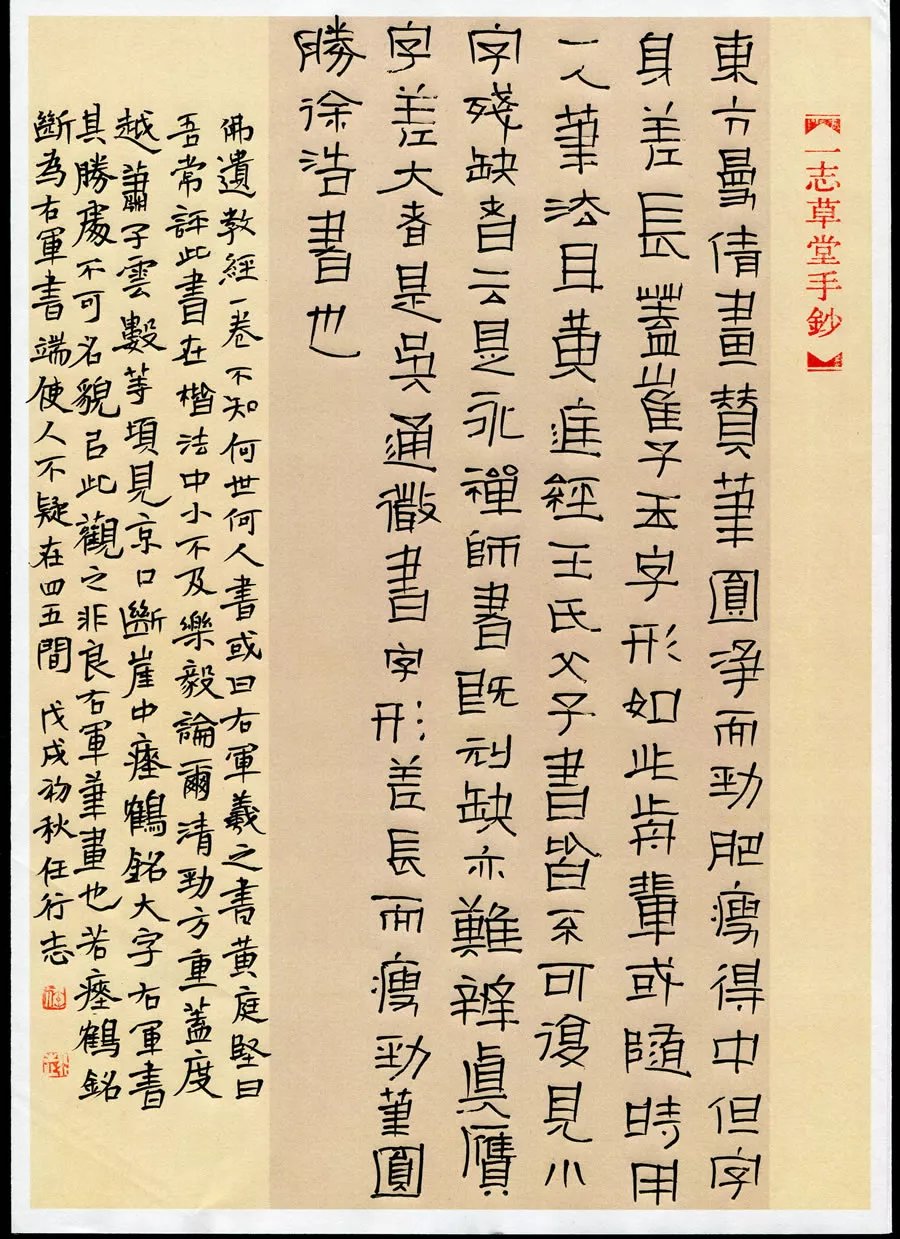 【一志草堂手鈔】
東方曼倩畫贊筆圓淨而勁肥瘦得中但字
身差長蓋崔子玉字形如此前輩或隨時用
一人筆法耳黃庭經王氏父子書皆不可復見小
字殘缺者云是永禪師書既刓缺亦難辨真贗
字差大者是吳通微書字形差長而瘦勁筆圓
勝徐浩書也
佛遺教經一卷不知何世何人書或曰右軍羲之書黃庭堅曰
吾常評此書在楷法中小不及樂毅論爾清勁方重蓋度
越蕭子雲數等頃見京口斷崖中瘞鶴銘大字右軍書
其勝處不可名貌以此觀之非良右軍筆畫也若瘞鶴銘
斷為右軍書端使人不疑在四五間 戊戌初秋任行志